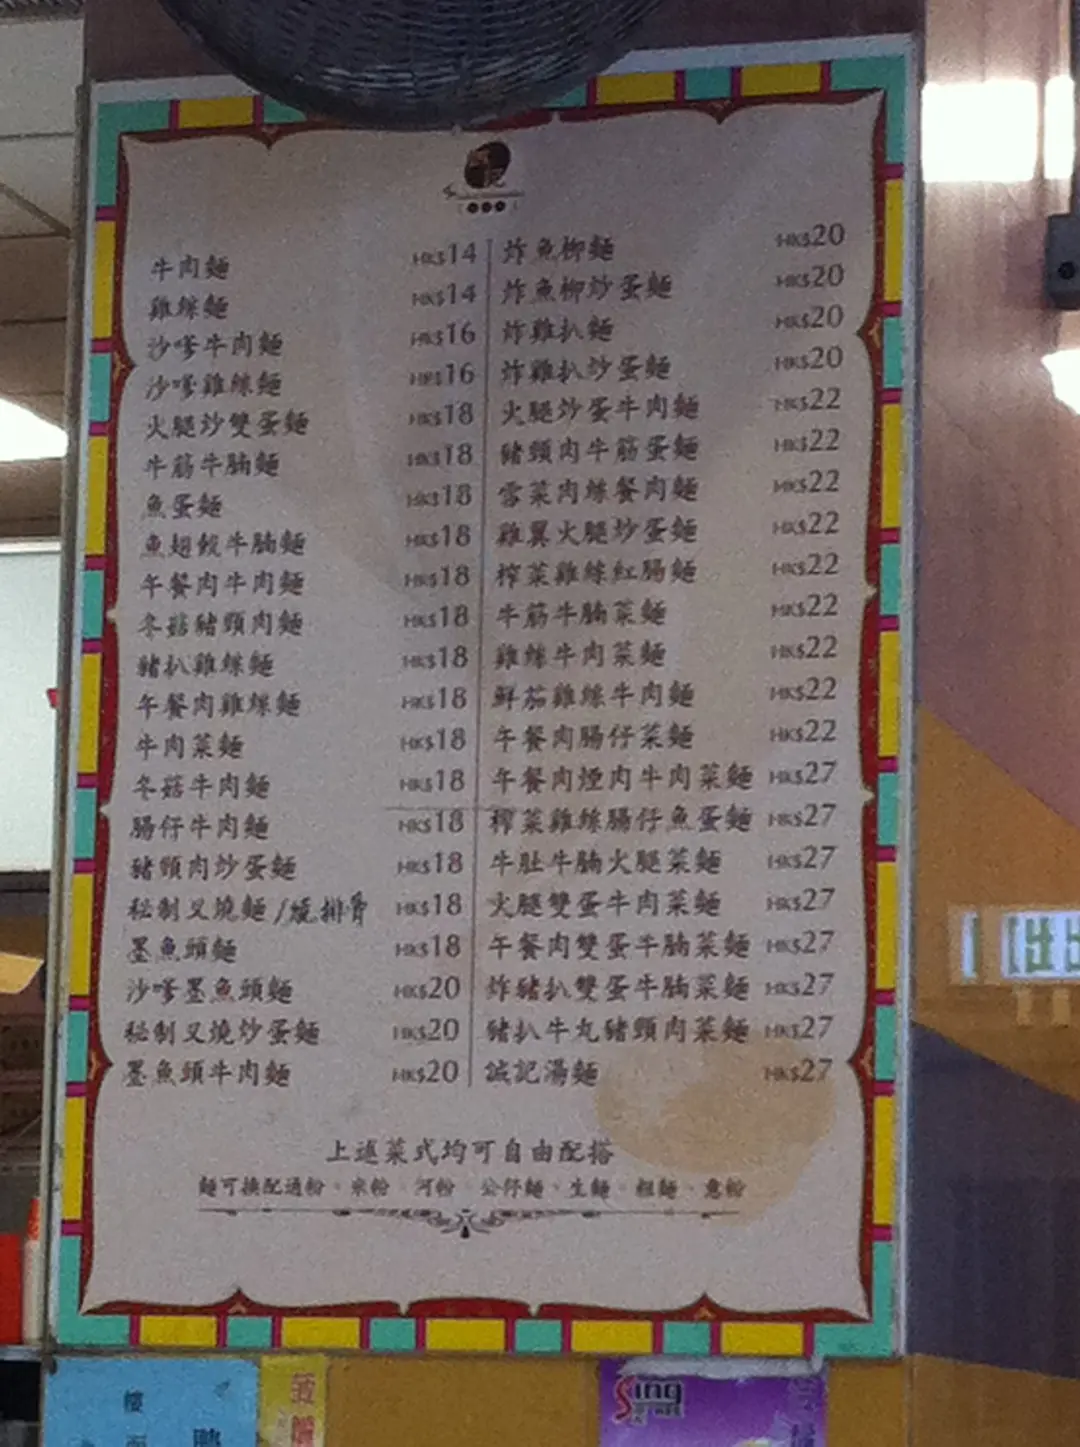 牛肉麵 HK$14
雞絲麵 HK$14
沙嗲牛肉麵 HK$16
沙嗲雞絲麵 HK$16
火腿炒雙蛋麵 HK$18
牛筋牛腩麵 HK$18
魚蛋麵 HK$18
魚翅餃牛腩麵 HK$18
午餐肉牛肉麵 HK$18
冬菇豬頸肉麵 HK$18
豬扒雞絲麵 HK$18
午餐肉雞絲麵 HK$18
牛肉菜麵 HK$18
冬菇牛肉麵 HK$18
腸仔牛肉麵 HK$18
豬頸肉炒蛋麵 HK$18
秘制叉燒麵/燒排骨 HK$18
墨魚頭麵 HK$18
沙嗲墨魚頭麵 HK$20
秘制叉燒炒蛋麵 HK$20
墨魚頭牛肉麵 HK$20
炸魚柳麵 HK$20
炸魚柳炒蛋麵 HK$20
炸雞扒麵 HK$20
炸雞扒炒蛋麵 HK$20
火腿炒蛋牛肉麵 HK$22
豬頸肉牛筋蛋麵 HK$22
雪菜肉絲餐肉麵 HK$22
雞翼火腿炒蛋麵 HK$22
榨菜雞絲紅腸麵 HK$22
牛筋牛腩菜麵 HK$22
雞絲牛肉菜麵 HK$22
鮮茄雞絲牛肉麵 HK$22
午餐肉腸仔菜麵 HK$22
午餐肉煙肉牛肉菜麵 HK$27
榨菜雞絲腸仔魚蛋麵 HK$27
牛肚牛腩火腿菜麵 HK$27
火腿雙蛋牛肉菜麵 HK$27
午餐肉雙蛋牛腩菜麵 HK$27
炸豬扒雙蛋牛腩菜麵 HK$27
豬扒牛丸豬頸肉菜麵 HK$27
誠記湯麵 HK$27
上述菜式均可自由配搭
麵可換配通粉、米粉、河粉、公仔麵、生麵、粗麵、意粉
Sing
樓